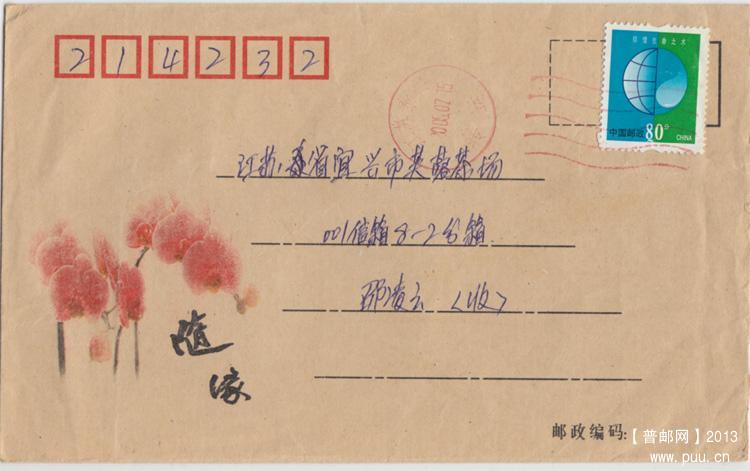 214232
珍惜生命之水
中国邮政 80分 CHINA
江苏省宜兴市芙蓉茶场
001信箱8-2分箱
邵凌云〈收〉
随
缘
邮政编码:【普邮网】2013
www.puu.cn